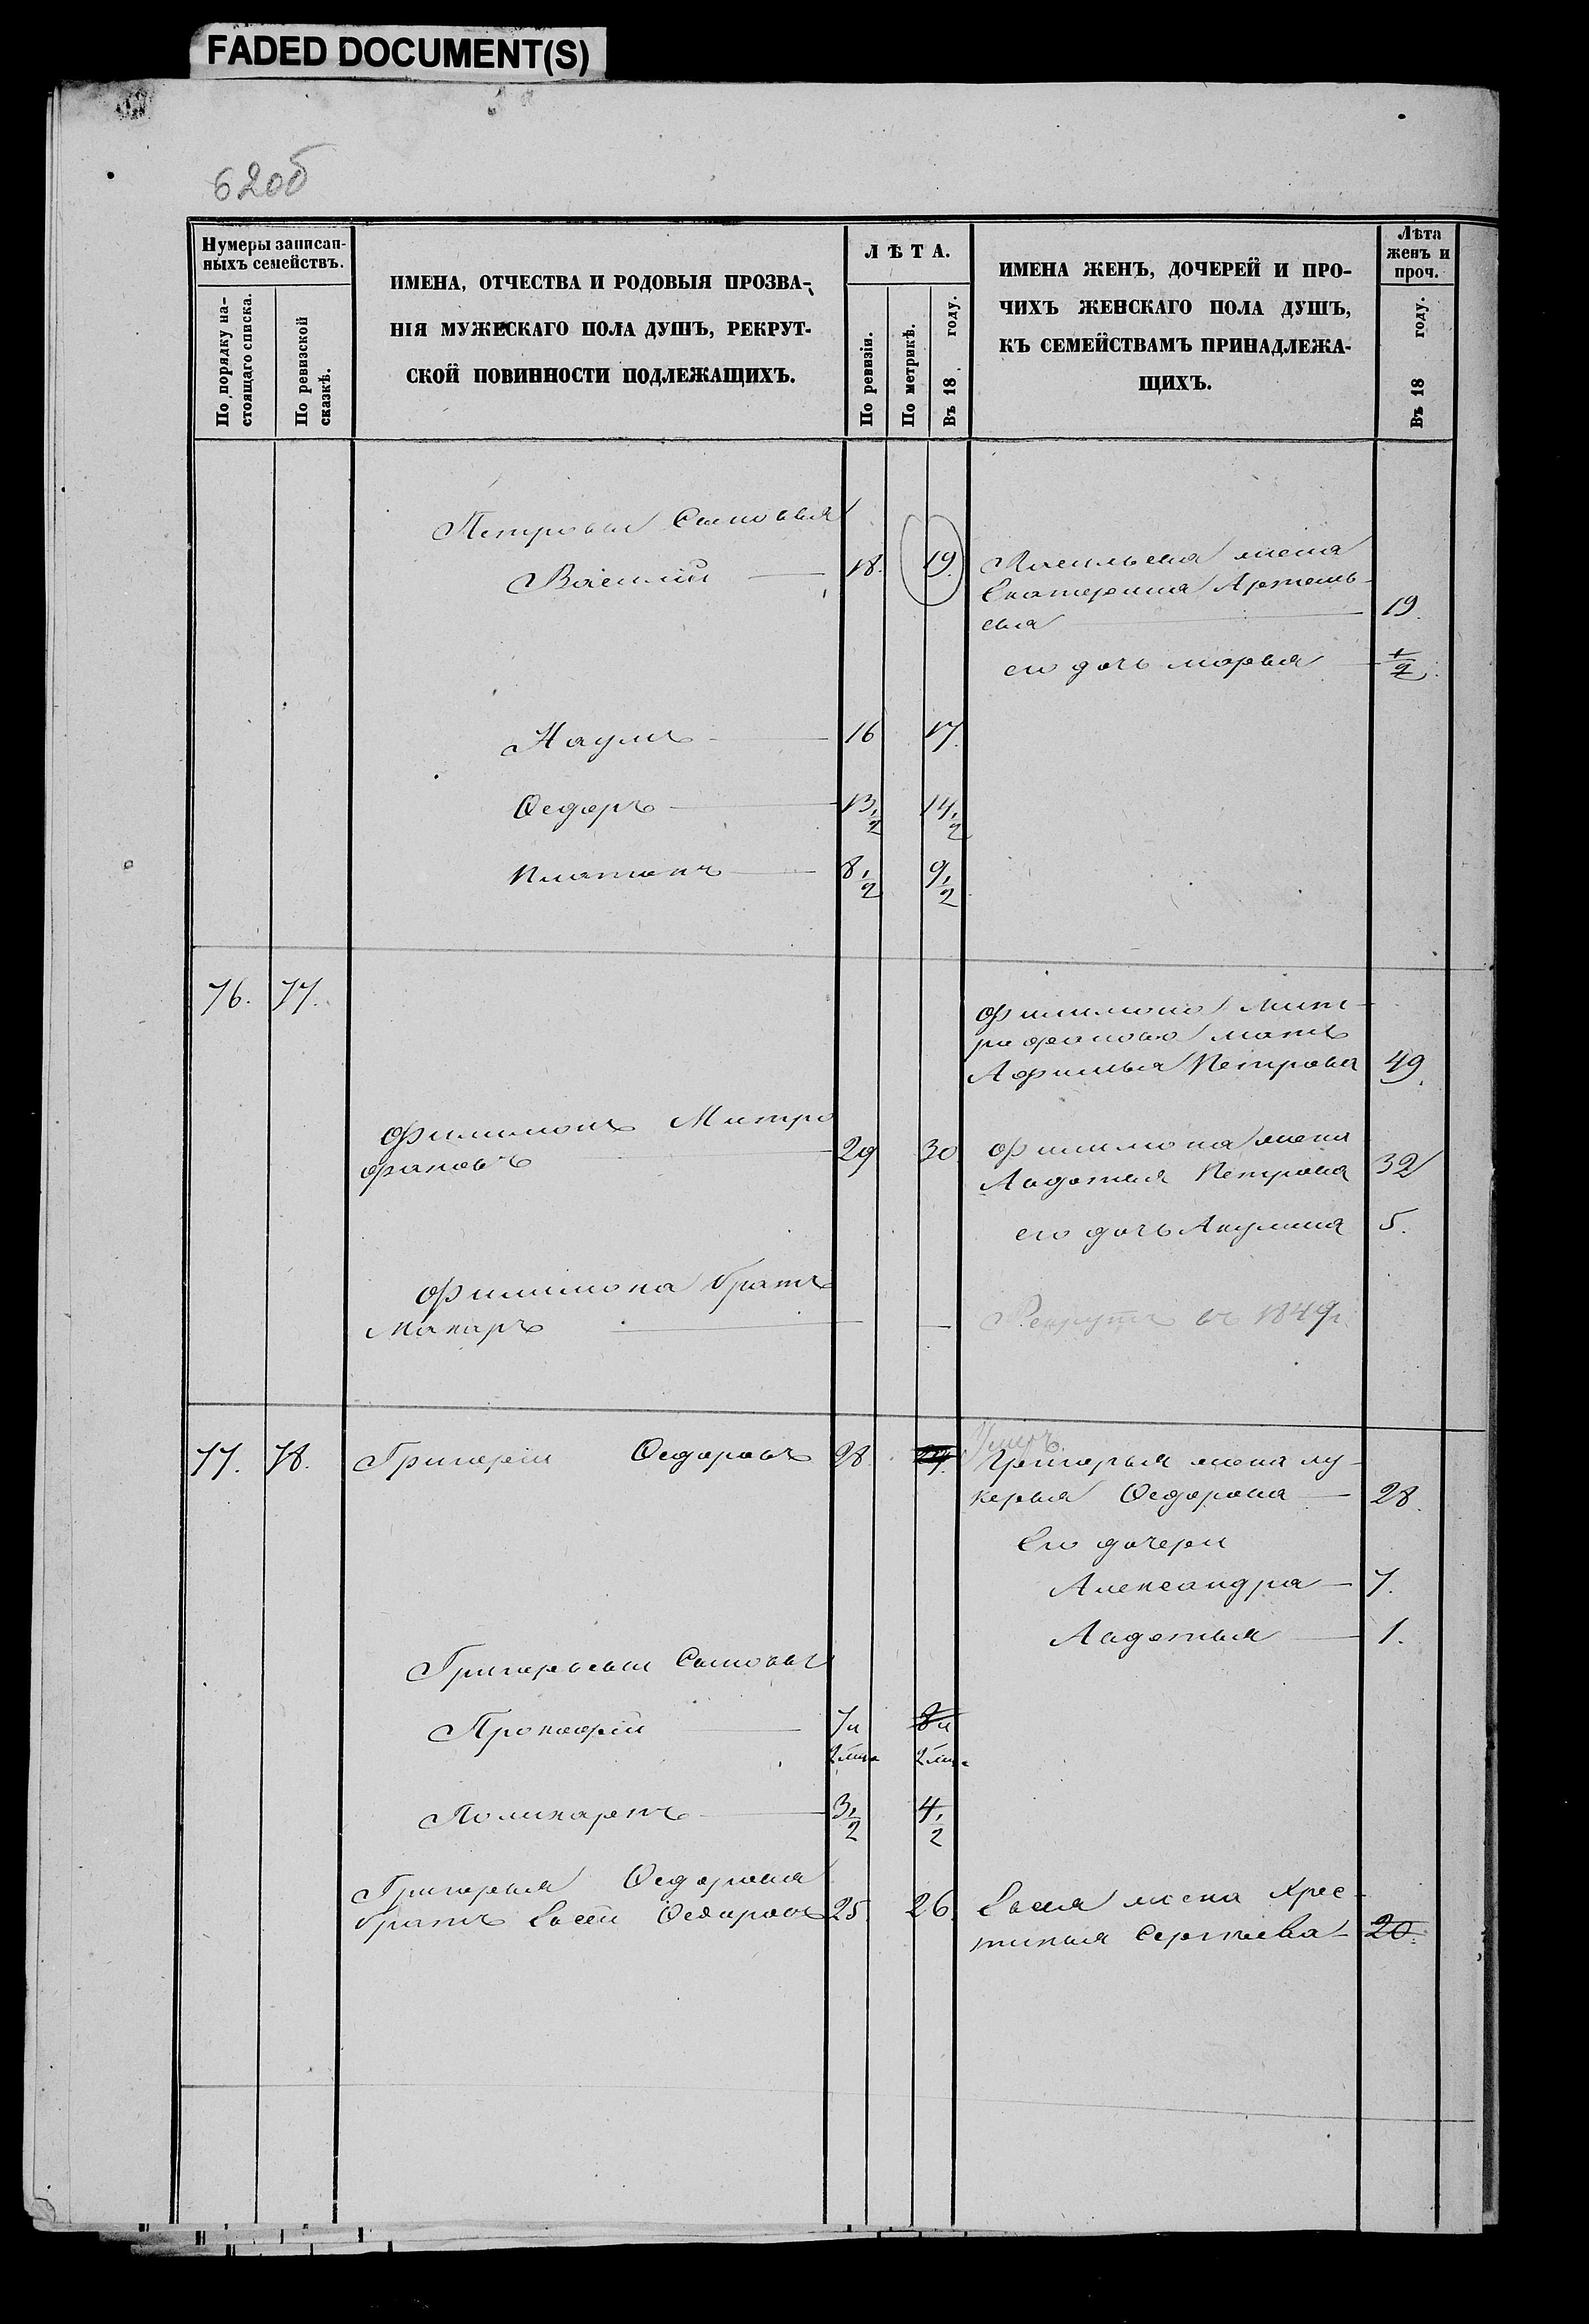 FADED DOCUMENT(S)
62об
Нумеры записан-
ныхъ семействъ.
По порядку на-
стоящаго списка.
По ревизской
сказкѣ.
ИМЕНА, ОТЧЕСТВА И РОДОВЫЯ ПРОЗВА-
НІЯ МУЖЕСКАГО ПОЛА ДУШЪ, РЕКРУТ-
СКОЙ ПОВИННОСТИ ПОДЛЕЖАЩИХЪ.
ЛѢТА.
По ревизіи.
По метрикѣ.
Въ 18 году.
ИМЕНА ЖЕНЪ, ДОЧЕРЕЙ И ПРО-
ЧИХЪ ЖЕНСКАГО ПОЛА ДУШЪ,
КЪ СЕМЕЙСТВАМЪ ПРИНАДЛЕЖА-
ЩИХЪ.
Лѣта
женъ и
проч.
Въ 18 году.
Петровы Сыновья
Василій 18. 19. Васильева жена
Екатерина Артемь-
ева 19.
его дочь марья 1/2
Наумъ 16 17.
Ѳедоръ 13 1/2 14 1/2
Платонъ 8 1/2 9 1/2
76. 77. Филимона Мит-
рофанова мать
Афимья Петрова 49.
Филимонъ Митро
фановъ 29 30 Филимона жена
Авдотья Петрова 32
его дочь Акулина 5.
Филимона братъ
Макаръ Рекрутъ въ 1849г.
Умеръ.
77. 78. Григорій Ѳедоровъ 28. 29. Григорья жена лу-
керья Ѳедорова 28.
Его дочери
Александра 7.
Авдотья 1.
Григорьевы Сыновья
Прокофій 7 и 8 и
2 мца 2 мца
Поликарпъ 3 1/2 4 1/2
Григорья Ѳедорова
братъ Евсей Ѳедоровъ 25. 26. Евсея жена Хрес-
тинья Сергѣева 20.